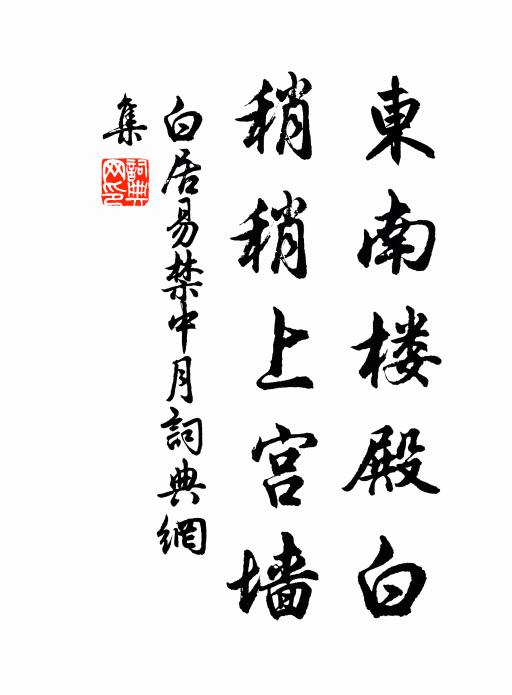 東南楼殿白
稍稍上宫墙
白居易禁中月詞典網
集
詞典
网印